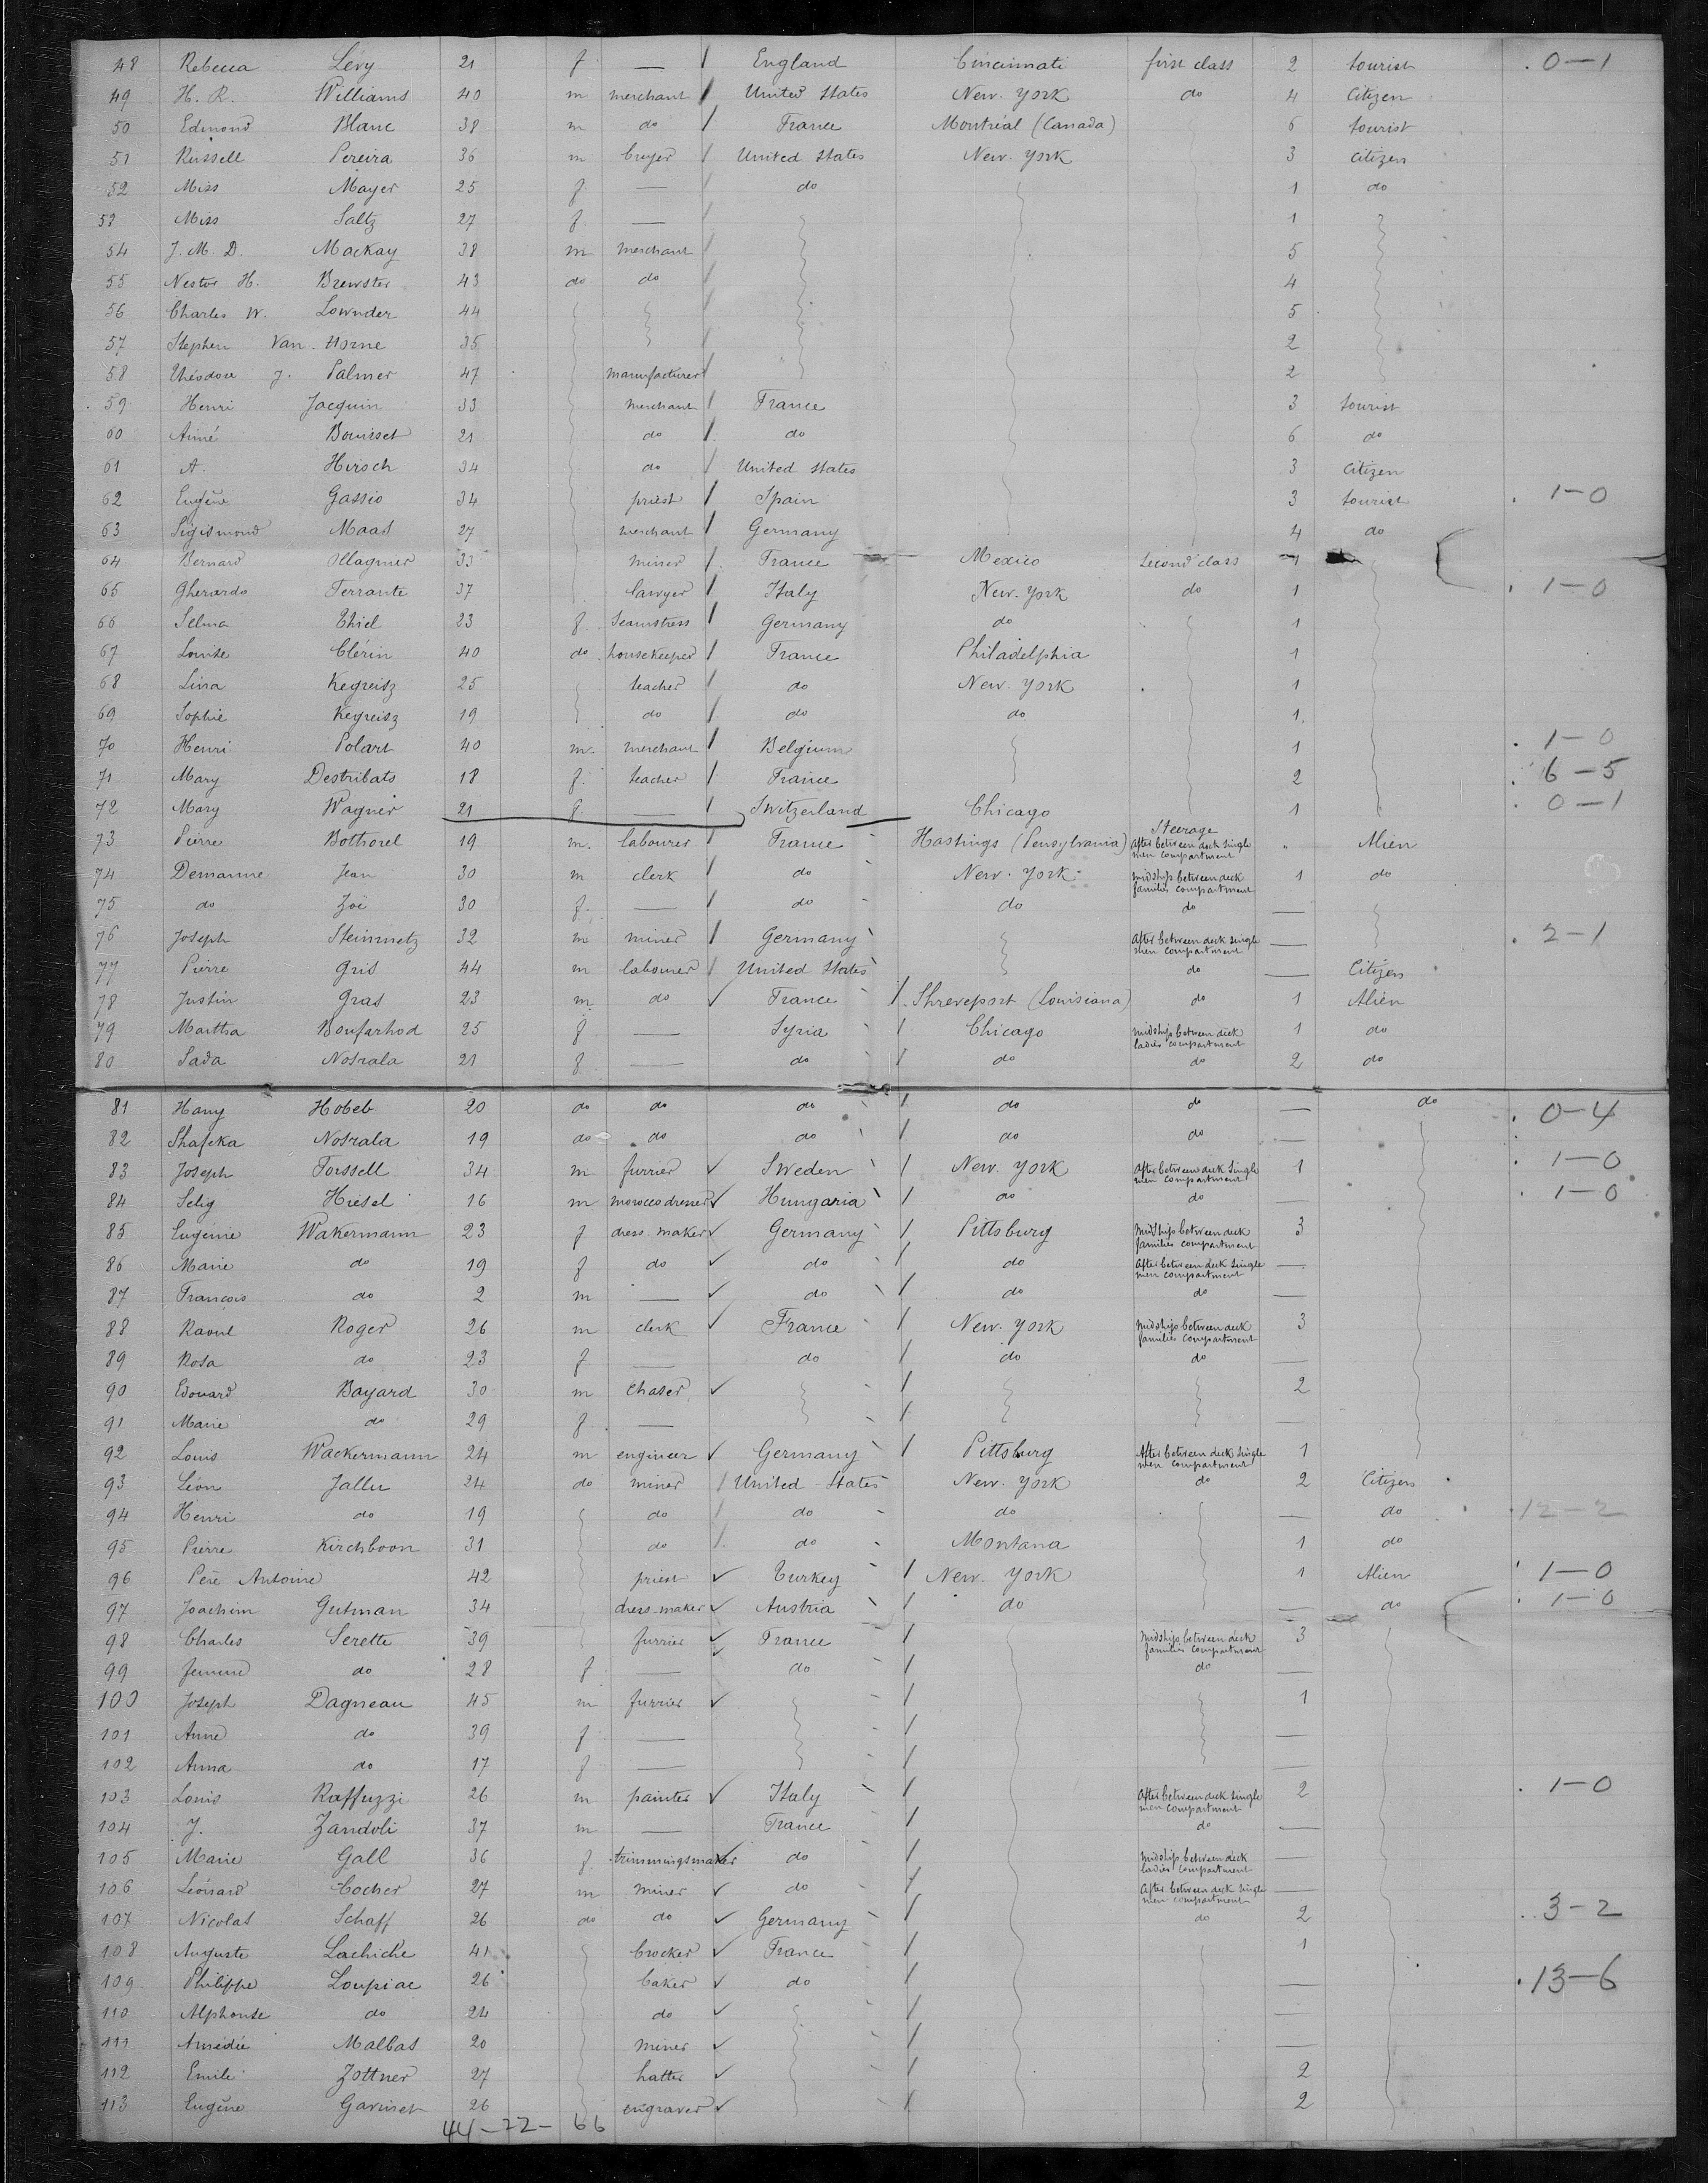 48 Rebecca Lévy 21 f — England Cincinnati first class 2 tourist 0—1
49 H. R. Williams 40 m merchant United States New. York do 4 Citizen
50 Edmond Blanc 38 m do France Montréal (Canada) 6 tourist
51 Russell Pereira 36 m buyer United States New. York 3 citizen
52 Miss Mayer 25 f. — do 1 do
53 Miss Saltz 27 f — 1
54 J. M. D. Mackay 38 m merchant 5
55 Nestor H. Brewster 43 do do 4
56 Charles W. Lownder 44 5
57 Stephen Van. Horne 35 2
58 Théodore J. Palmer 47 manufacturer 2
59 Henri Jacquin 33 merchant France 3 tourist
60 Aimé Bouiset 21 do do 6 do
61 A. Hirsch 34 do United States 3 Citizen
62 Eugène Gassio 34 priest Spain 3 tourist 1—0
63 Sigismond Maas 27 merchant Germany 4 do
64 Bernard Ollagnier 33 miner France Mexico Second class 1
65 Gherardo Ferrante 37 lawyer Italy New. York do 1 1—0
66 Selma Thiel 23 f. Seamstress Germany do 1
67 Louise Clérin 40 do housekeeper France Philadelphia 1
68 Lina Kegreisz 25 teacher do New. York 1
69 Sophie Kegreisz 19 do do do 1
70 Henri Polart 40 m. merchant Belgium 1 1—0
71 Mary Destribats 18 f. teacher France 2 6—5
72 Mary Wagner 21 f — Switzerland Chicago 1 0—1
73 Pierre Bothorel 19 m. labourer France Hastings (Pensylvania) Steerage After between deck single men compartment " Alien
74 Demanne Jean 30 m clerk do New. York midship between deck families compartment 1 do
75 do Zoë 30 f. — do do do —
76 Joseph Steinmetz 32 m miner Germany After between deck single men compartment — 2—1
77 Pierre Gris 44 m labourer United States do — Citizen
78 Justin Gras 23 m do France Shreveport (Louisiana) do 1 Alien
79 Martha Boufarhod 25 f — Syria Chicago midship between deck ladies compartment 1 do
80 Sada Nosrala 21 f — do do do 2 do
81 Hany Hobeb 20 do do do do do — do 0—4
82 Shafcka Nosrala 19 do do do do do —
83 Joseph Forssell 34 m furrier Sweden New. York After between deck single men compartment 1 1—0
84 Selig Hiesel 16 m morocco dresser Hungaria do do — 1—0
85 Eugénie Wakermann 23 f dress. maker Germany Pittsburg Midships between deck families compartment 3
86 Marie do 19 f do do do After between deck single men compartment —
87 Francois do 2 m — do do do —
88 Raoul Roger 26 m clerk France New. York Midships between deck families compartment 3
89 Rosa do 23 f — do do do —
90 Edouard Bayard 30 m chaser 2
91 Marie do 29 f. — —
92 Louis Wackermann 24 m engineer Germany Pittsburg After between deck single men compartment 1
93 Léon Jallu 24 do miner United States New. York do 2 Citizen
94 Henri do 19 do do do — do 12—2
95 Pierre Kirchboon 31 do do Montana 1 do
96 Père Antoine 42 priest Turkey New. York 1 Alien 1—0
97 Joachim Gutman 34 dress-maker Austria do — do 1—0
98 Charles Serette 39 furrier France Midships between deck families compartment 3
99 femme do 28 f — do do —
100 Joseph Dagneau 45 m furrier 1
101 Anne do 39 f — —
102 Anna do 17 f — —
103 Louis Raffuzzi 26 m painter Italy After between deck single men compartment 2 1—0
104 J. Zandoli 37 m — France do —
105 Marie Gall 36 f. trimmingsmaker do midship between deck ladies compartment —
106 Léonard Cocher 27 m miner do After between deck single men compartment —
107 Nicolas Schaff 26 do do Germany do 2 3—2
108 Auguste Lachiche 41 brocker France 1
109 Philippe Loupiac 26 baker do — 13—6
110 Alphonse do 24 do —
111 Amédée Malbas 20 miner —
112 Emile Zottner 27 hatter 2
113 Eugène Gavinet 26 engraver 2
44—22—66